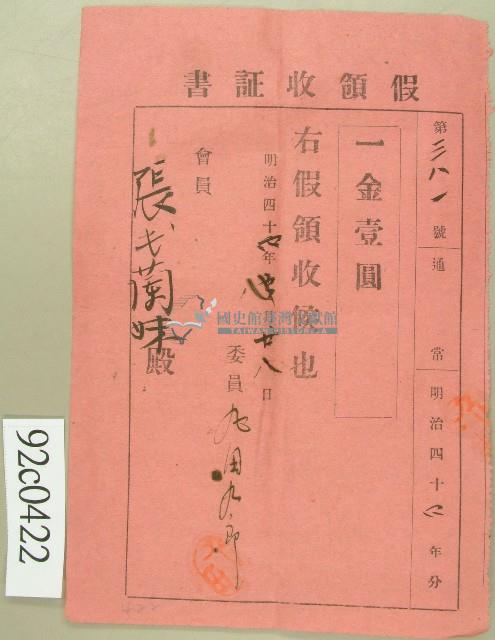 假領收証書
第三八一號 通常 明治四十四年分
一金壹圓
右假領收候也
明治四十四年 廿八日
委員
會員 張 蘭妹殿
國史館臺灣文獻館
TAIWAN HISTORICA
92c0422
422